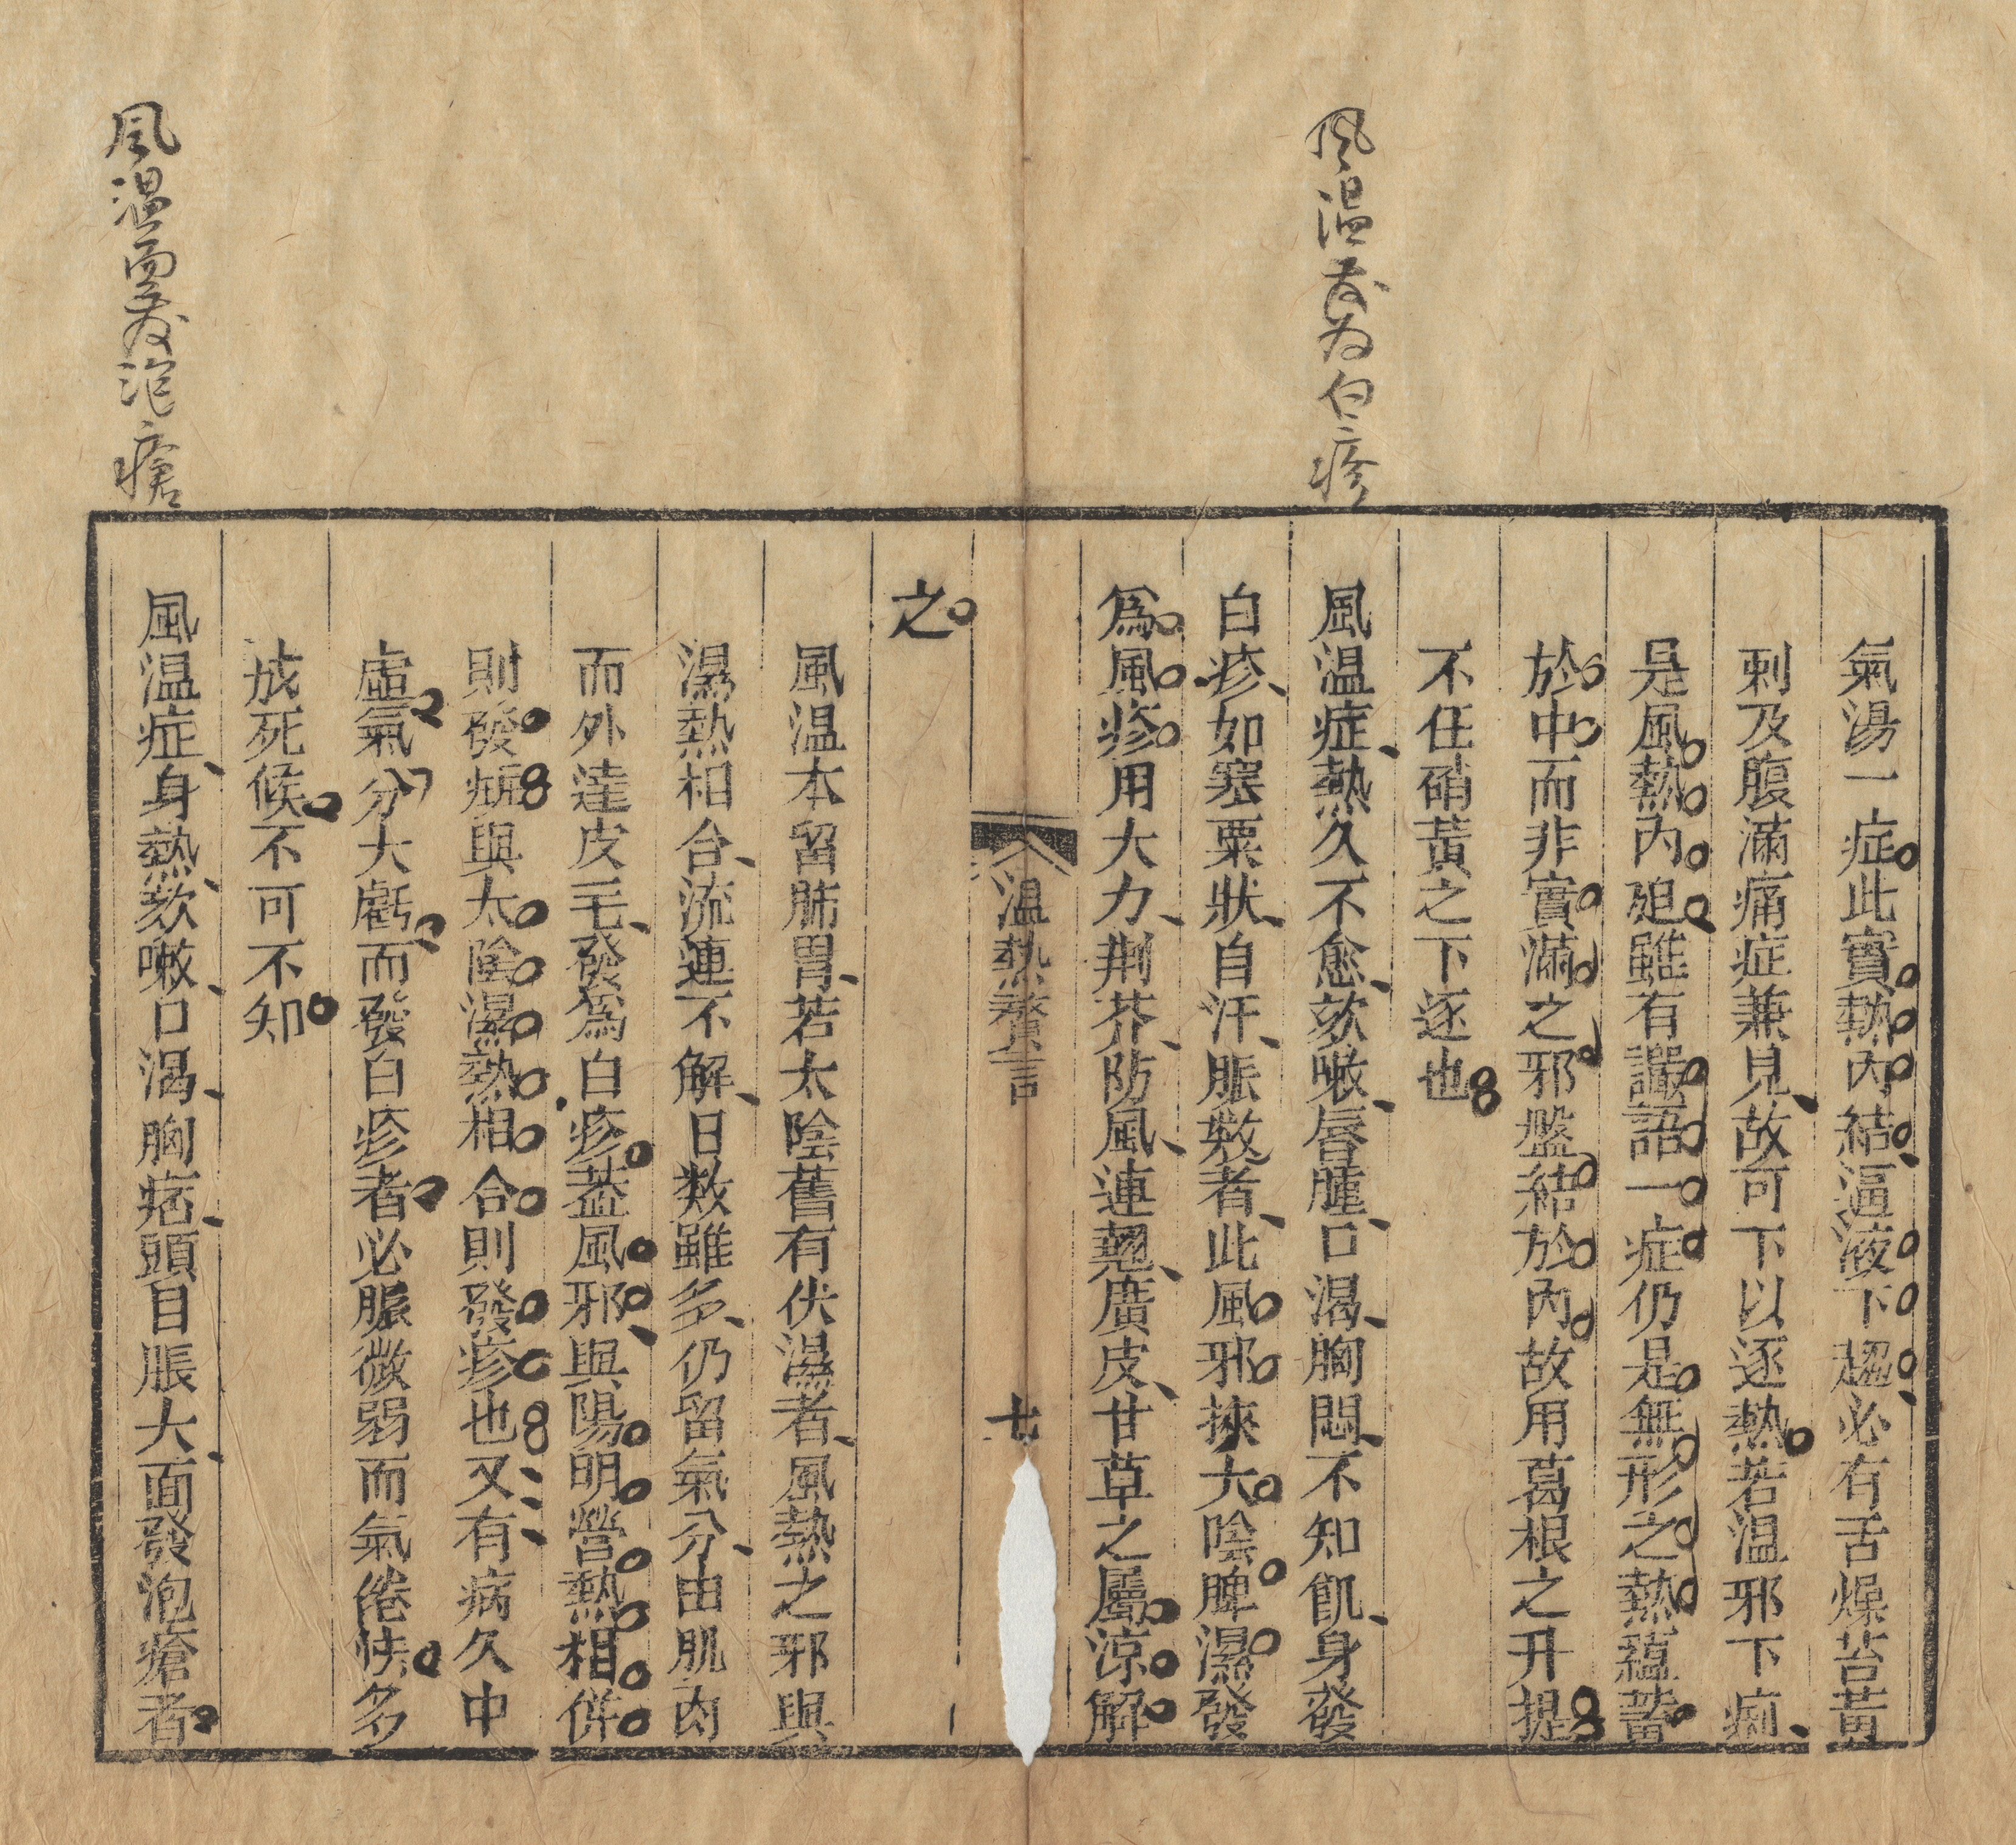 風温發为白疹
氣湯一症此實熱内結逼液下趨必有舌燥苔黄
刺及腹滿痛症兼見故可下以逐熱若温邪下痢
是風熱内廹雖有讝語一症仍是無形之熱蘊蓄
於中而非實滿之邪盤結於内故用葛根之升提
不任硝黄之下逐也
風温症熱久不愈欬嗽唇腫口渴胸悶不知飢身發
白疹如寒粟狀自汗脈數者此風邪挾太陰脾濕發
爲風疹用大力荆芥防風連翹廣皮甘草之屬涼解
温熱贅言
七
之
風温本留肺胃若太陰舊有伏濕者風熱之邪與
濕熱相合流連不解日数雖多仍留氣分由肌肉
而外達皮毛發爲白疹蓋風邪與陽明營熱相併
則發癍與太陰濕熱相合則發疹也又有病久中
虛氣分大虧而發白疹者必脈微弱而氣倦怏多
成死候不可不知
風温而發泡瘡
風温症身熱欬嗽口渴胸痞頭目脹大面發泡瘡者